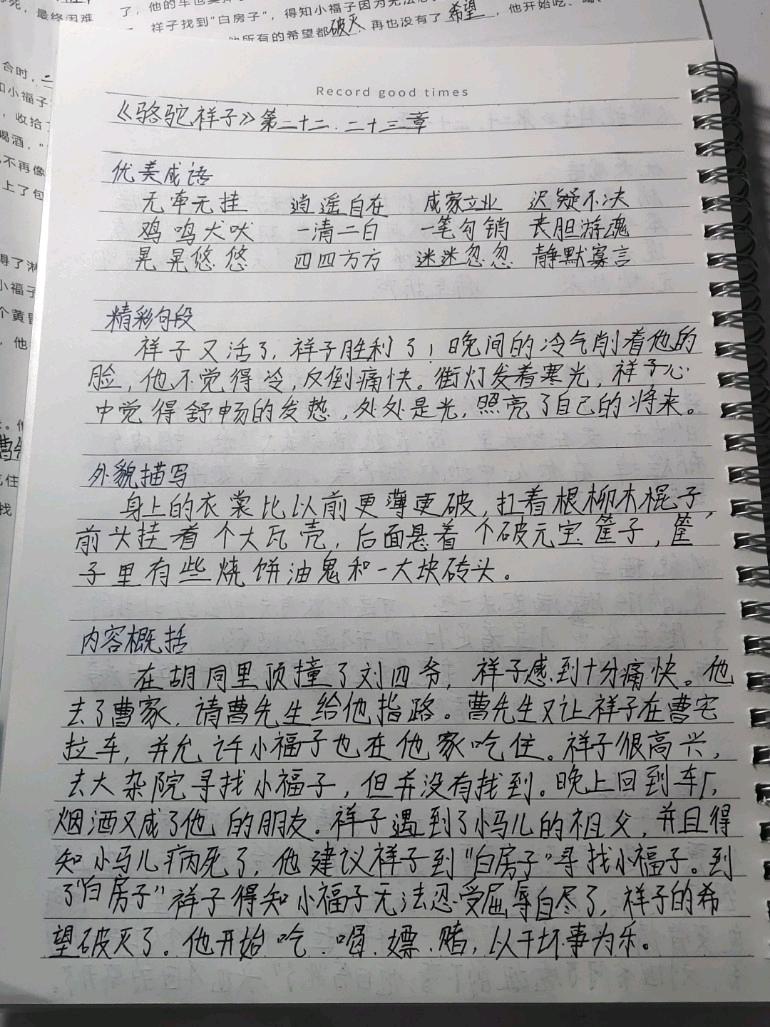 死,最终困难
了,他的车也
祥子找到“白房子”,得知小福子因为无法忍
他所有的希望都破灭,再也没有了希望,他开始吃、喝、
合时,
和小福子
,收拾
喝酒,”
不再像
上了包
得了淋
小福子
个黄
,他
住
找
Record good times
《骆驼祥子》第二十二.二十三章
优美成语
无牵无挂 逍遥自在 成家立业 迟疑不决
鸡鸣犬吠 一清二白 一笔勾销 丧胆游魂
晃晃悠悠 四四方方 迷迷忽忽 静默寡言
精彩句段
祥子又活了,祥子胜利了!晚间的冷气削着他的
脸,他不觉得冷,反倒痛快。街灯发着寒光,祥子心
中觉得舒畅的发热,处处是光,照亮了自己的将来。
外貌描写
身上的衣裳比以前更薄更破,扛着根柳木棍子,
前头挂着个大瓦壳,后面悬着个破元宝筐子,筐
子里有些烧饼油鬼和一大块砖头。
内容概括
在胡同里顶撞了刘四爷,祥子感到十分痛快。他
去了曹家,请曹先生给他指路。曹先生又让祥子在曹宅
拉车,并允许小福子也在他家吃住。祥子很高兴,
去大杂院寻找小福子,但并没有找到。晚上回到车厂,
烟酒又成了他的朋友。祥子遇到了小马儿的祖父,并且得
知小马儿病死了,他建议祥子到“白房子”寻找小福子。到
了“白房子”祥子得知小福子无法忍受屈辱自尽了,祥子的希
望破灭了。他开始吃.喝.嫖.赌,以干坏事为乐。